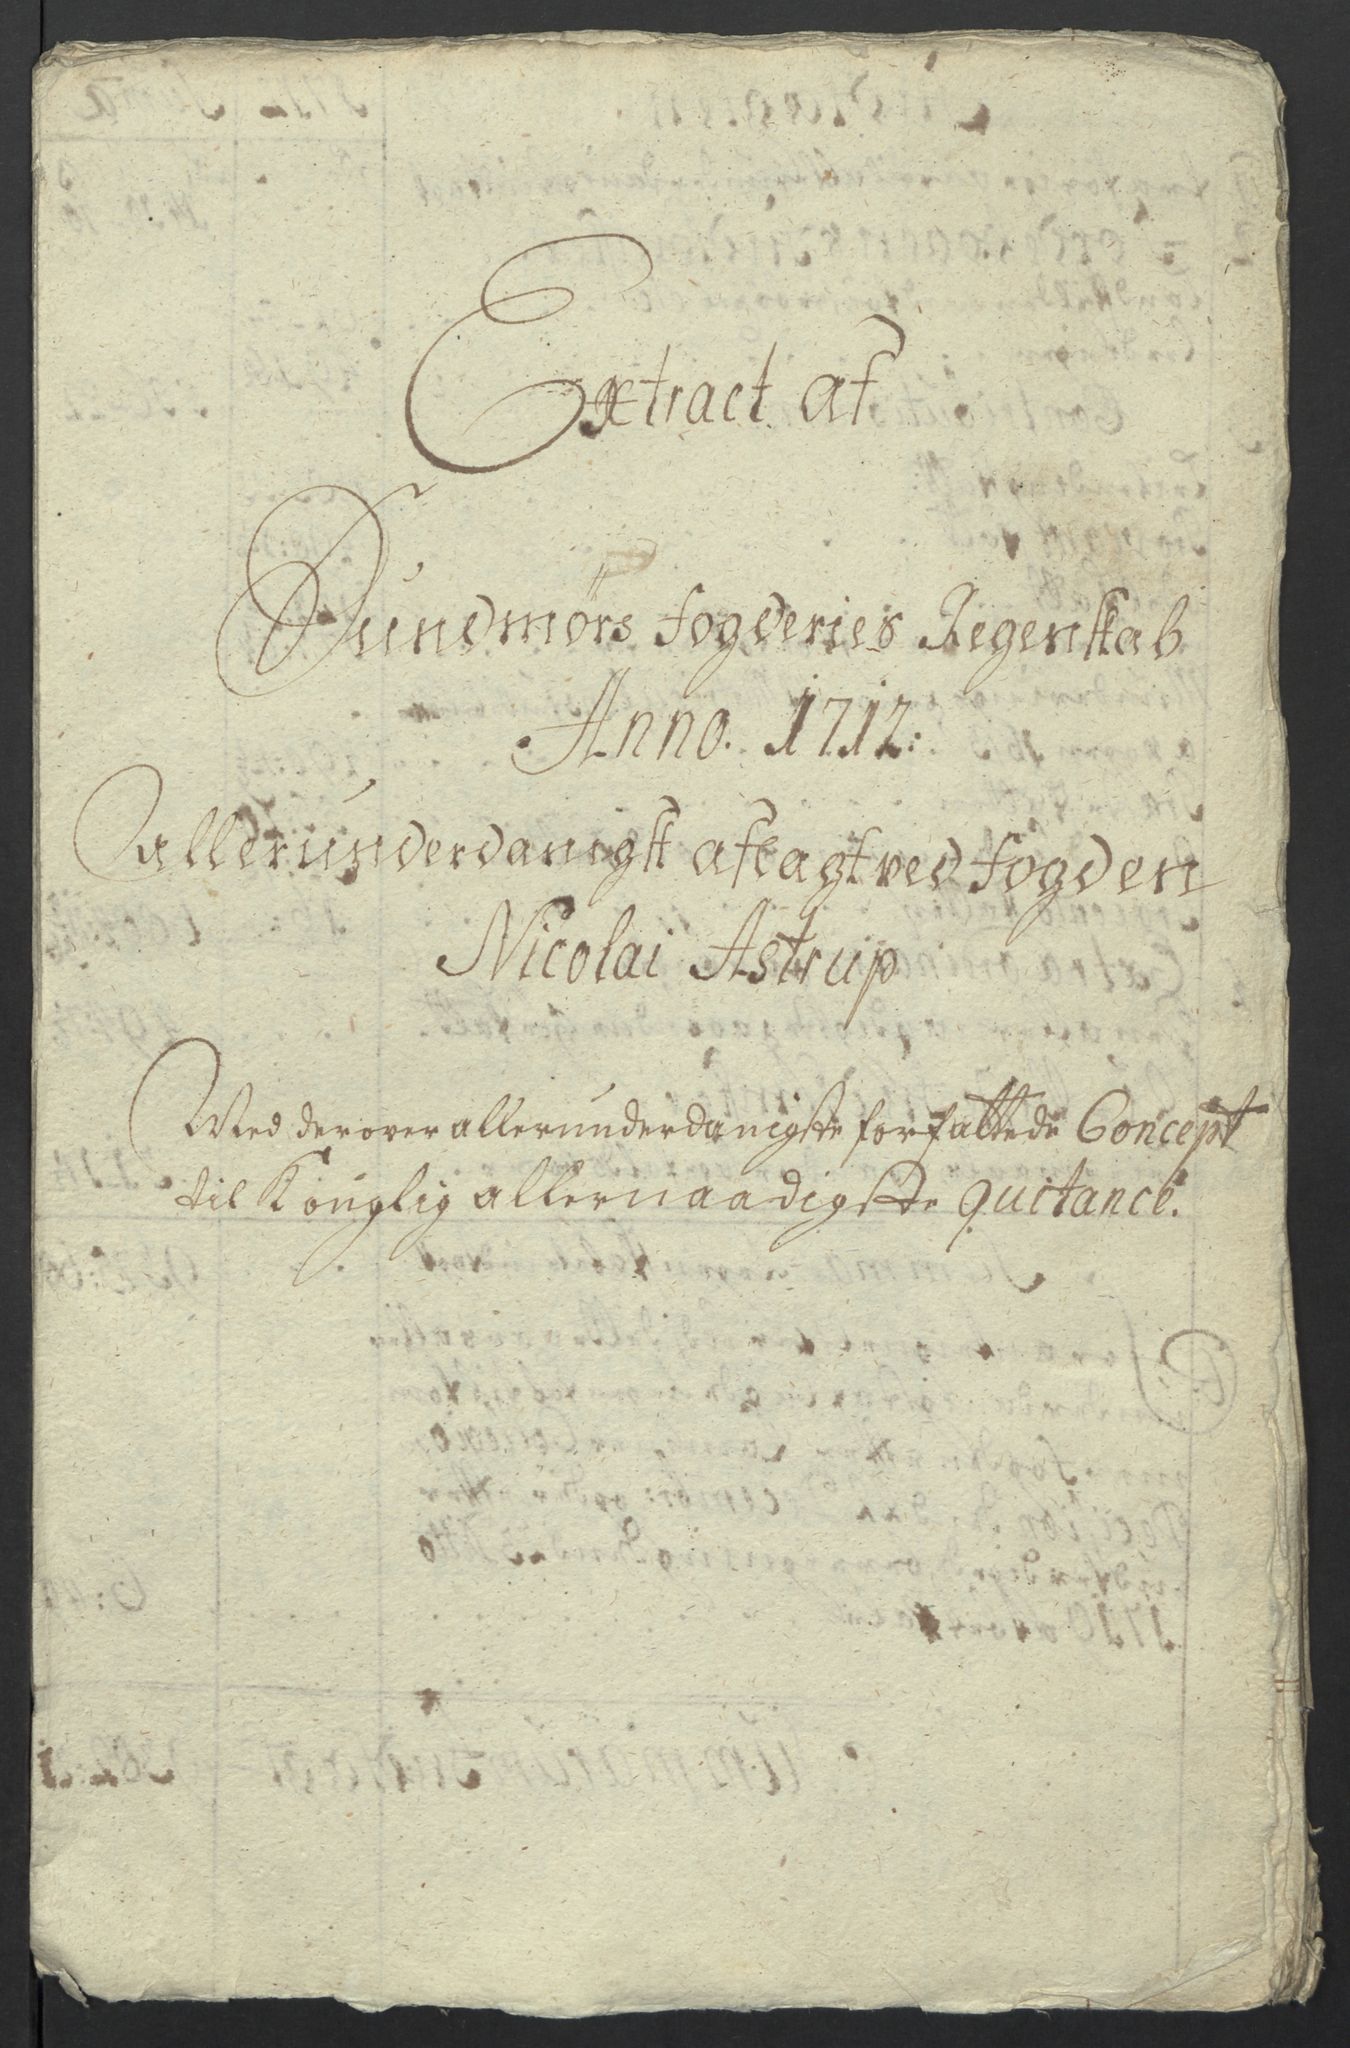 Extract af
Sundmørs fogderies Regenskab
Anno. 1712:
allerunderdanigst aflagt ved fogden
Nicolai Astrup
Med derover allerunderdanigste forfattede Concept
til Konglig allernaadigste quitance.